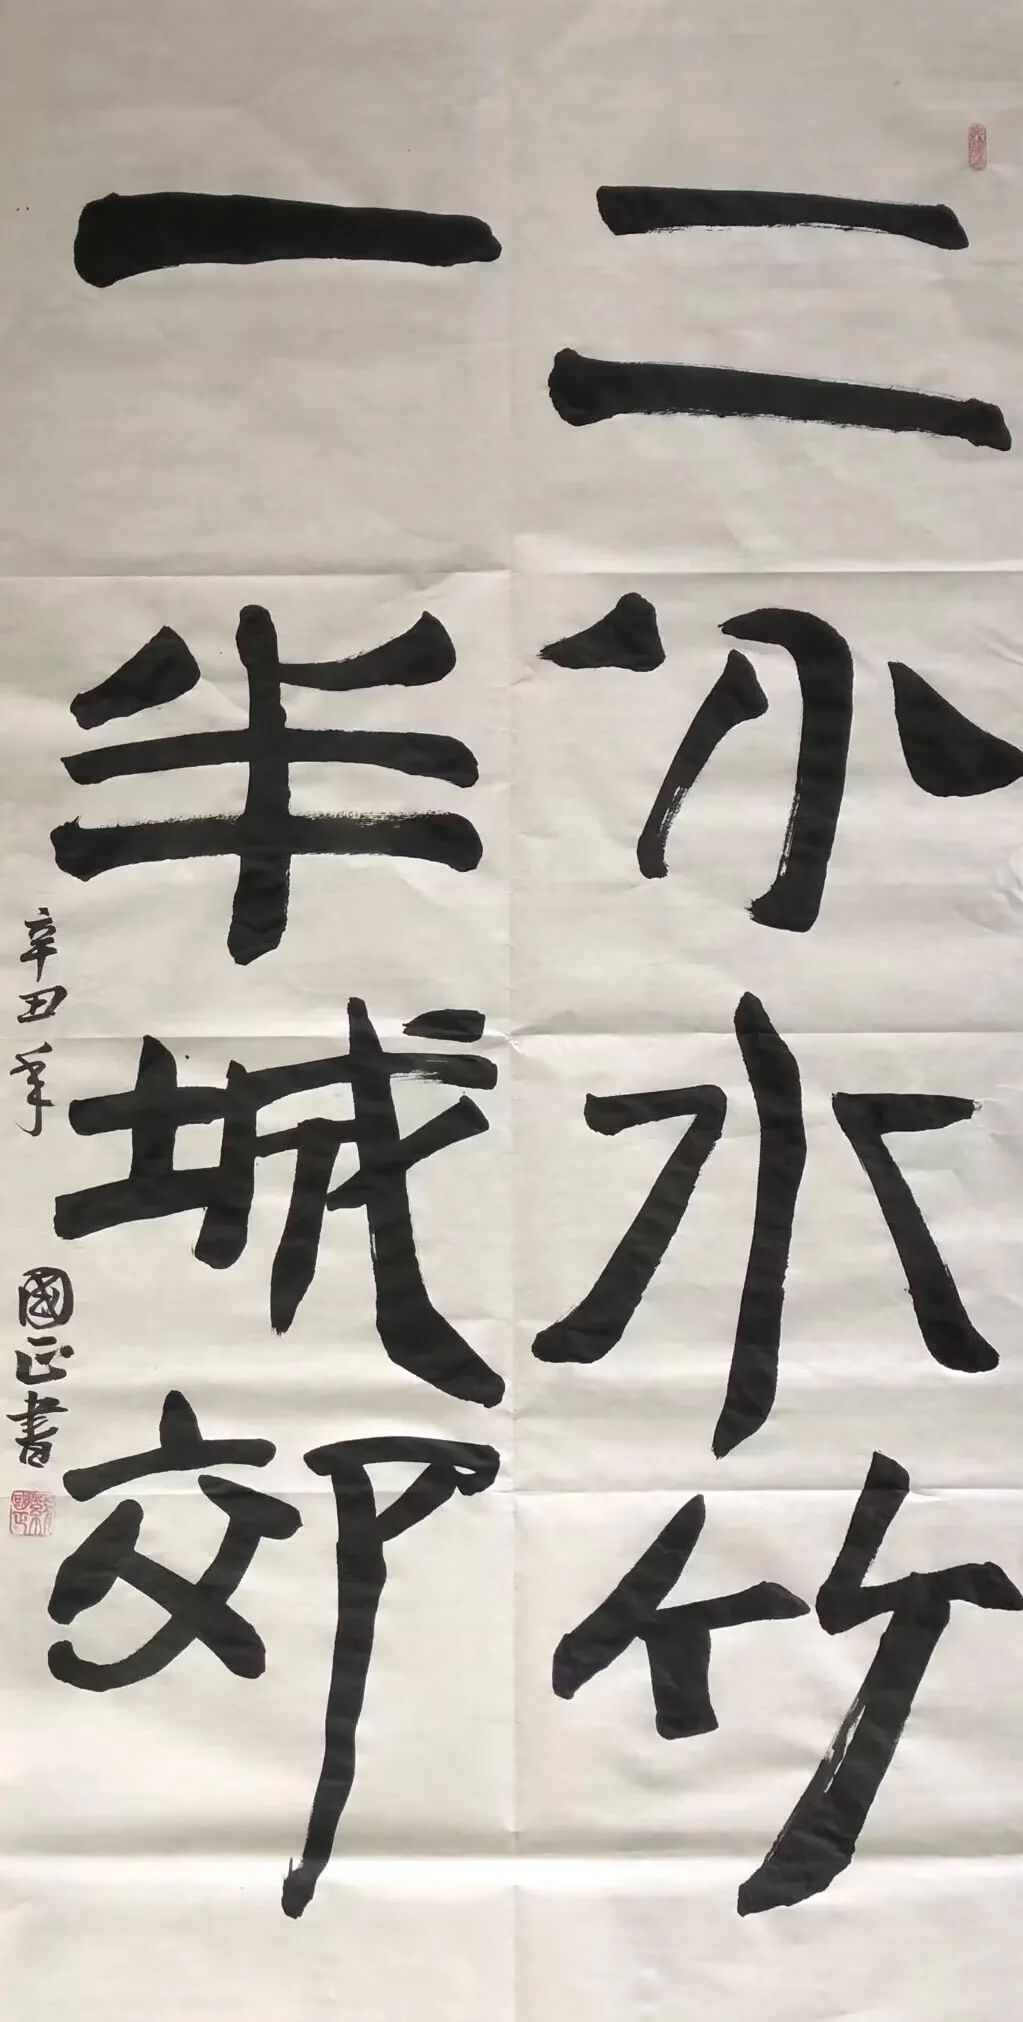 二分水竹
一半城郊
辛丑年
國正書